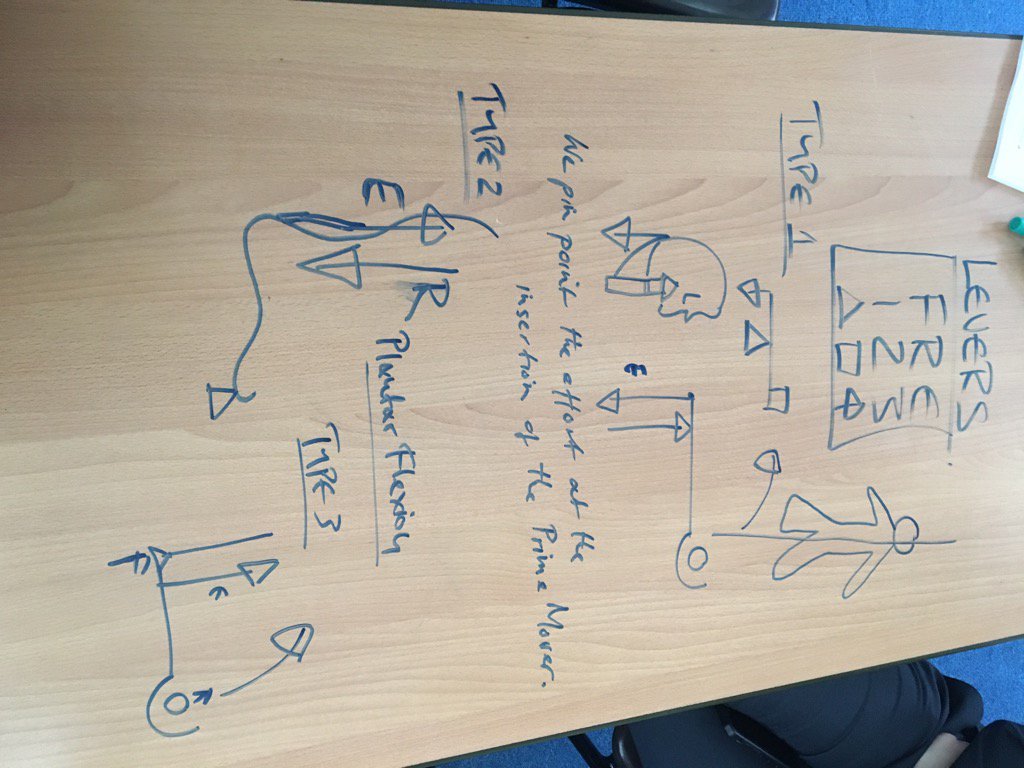 LEVERS
F R E
1 2 3
TYPE 1
E
We pin point the effort at the
insertion of the Prime Mover.
TYPE 2
E
R
Plantar Flexion
TYPE 3
F
E
R